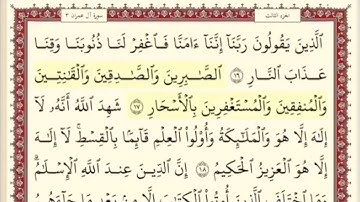 الجزء الثالث سورة آل عمران ٣
الَّذِينَ يَقُولُونَ رَبَّنَا إِنَّنَا ءَامَنَّا فَاغْفِرْ لَنَا ذُنُوبَنَا وَقِنَا
عَذَابَ النَّارِ ١٦ الصَّٰبِرِينَ وَالصَّٰدِقِينَ وَالْقَٰنِتِينَ
وَالْمُنفِقِينَ وَالْمُسْتَغْفِرِينَ بِالْأَسْحَارِ ١٧ شَهِدَ اللَّهُ أَنَّهُ لَآ
إِلَٰهَ إِلَّا هُوَ وَالْمَلَٰٓئِكَةُ وَأُولُوا الْعِلْمِ قَآئِمًا بِالْقِسْطِ لَآ إِلَٰهَ
إِلَّا هُوَ الْعَزِيزُ الْحَكِيمُ ١٨ إِنَّ الدِّينَ عِندَ اللَّهِ الْإِسْلَٰمُ
وَمَا اخْتَلَفَ الَّذِينَ أُوتُوا الْكِتَٰبَ إِلَّا مِنۢ بَعْدِ مَا جَآءَهُمُ